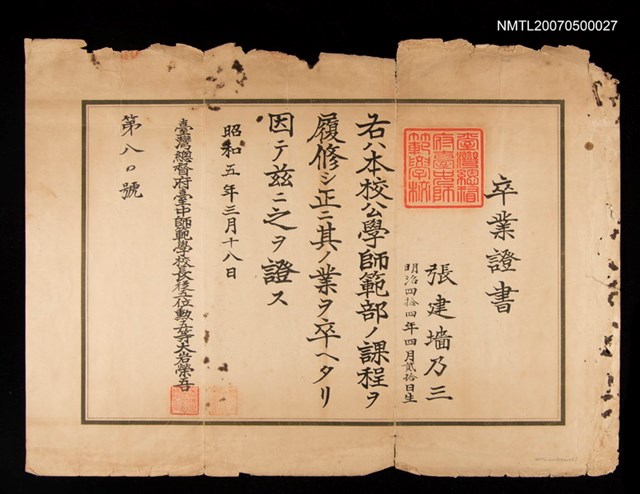 NMTL20070500027
卒業證書
張建墻乃三
明治四拾四年四月貳拾日生
右ハ本校公學師範部ノ課程ヲ
履修シ正ニ其ノ業ヲ卒ヘタリ
因テ茲ニ之ヲ證ス
昭和五年三月十八日
臺灣總督府臺中師範學校長從五位勲五等大岩榮吾
第八口號
臺灣總督
府臺中師
範學校